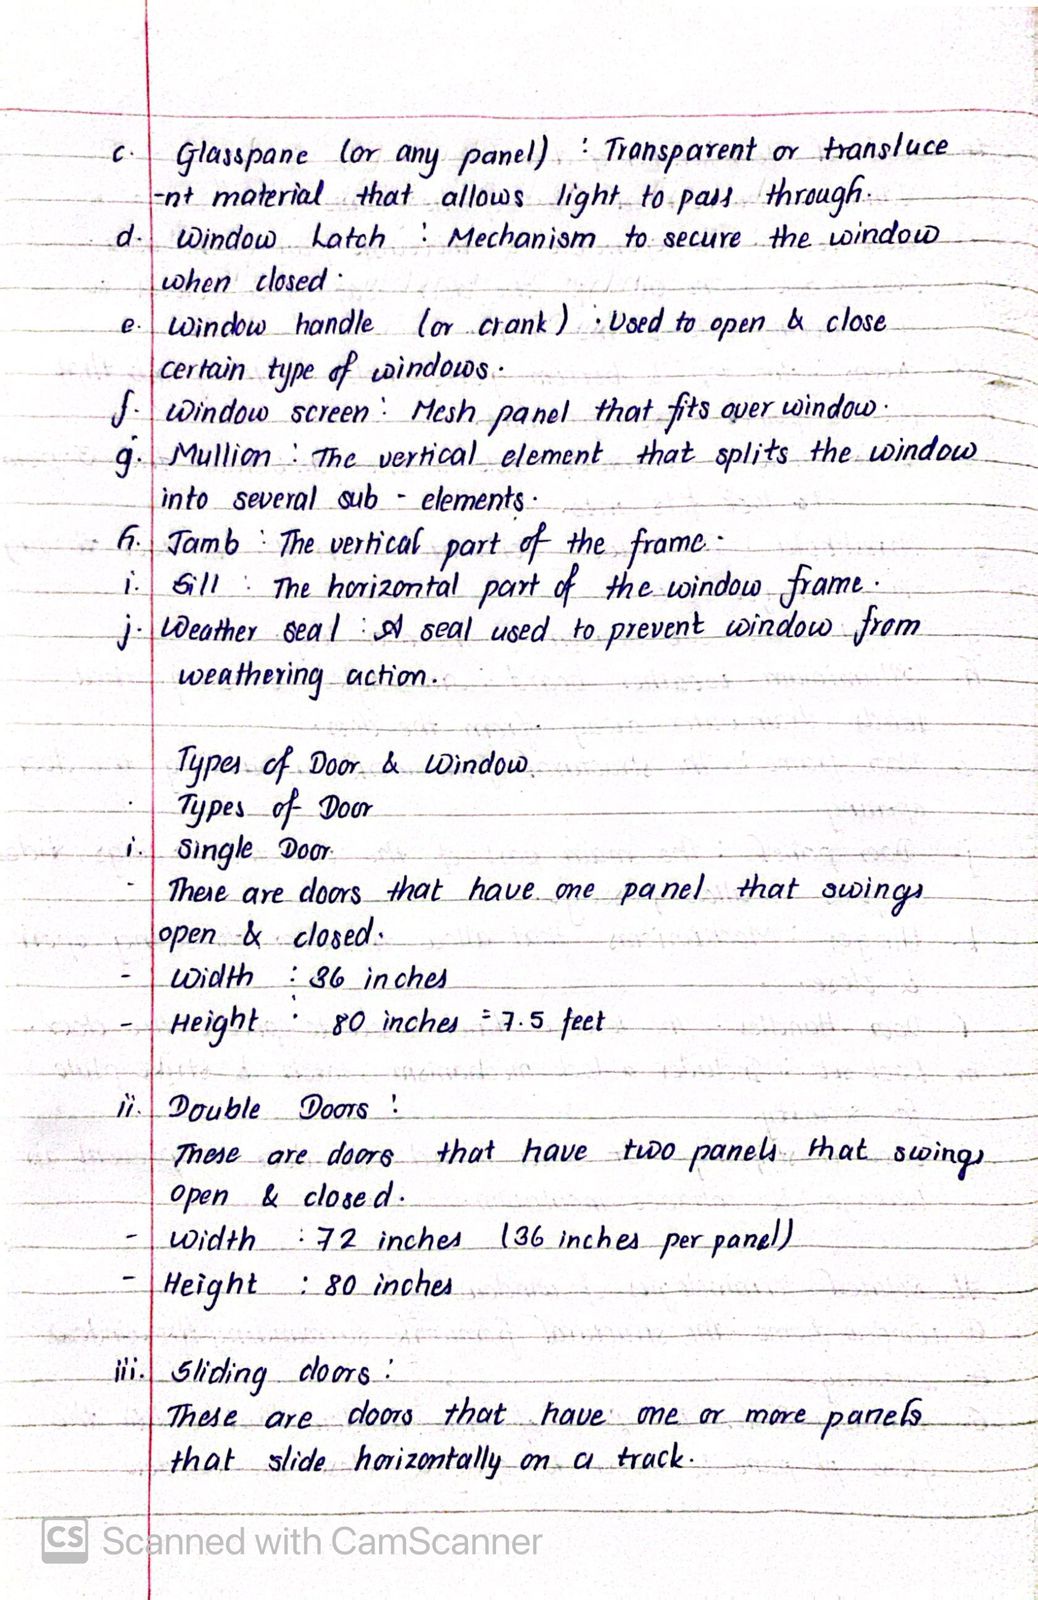 c. Glasspane (or any panel) : Transparent or transluce
-nt material that allows light to pass through.
d. Window Latch : Mechanism to secure the window
when closed.
e. Window handle (or crank) : Used to open & close
certain type of windows.
f. Window screen : Mesh panel that fits over window.
g. Mullion : The vertical element that splits the window
into several sub - elements.
h. Jamb : The vertical part of the frame.
i. Sill : The horizontal part of the window frame.
j. Weather seal : A seal used to prevent window from
weathering action.
Types of Door & Window
. Types of Door
i. Single Door
- These are doors that have one panel that swings
open & closed.
- Width : 36 inches
- Height : 80 inches = 7.5 feet
ii. Double Doors :
These are doors that have two panels that swings
open & closed.
- Width : 72 inches (36 inches per panel)
- Height : 80 inches
iii. Sliding doors :
These are doors that have one or more panels
that slide horizontally on a track.
CS Scanned with CamScanner